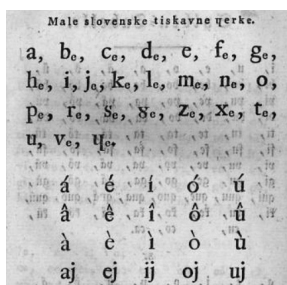 Male slovenske tiskavne ɥerke.
a, bₑ, cₑ, dₑ, e, fₑ, gₑ,
hₑ, i, jₑ, kₑ, lₑ, mₑ, nₑ, o,
pₑ, rₑ, sₑ, 8ₑ, zₑ, xₑ, tₑ,
u, vₑ, ɥₑ.
á é í ó ú
â ê î ô û
à è ì ò ù
aj ej ij oj uj